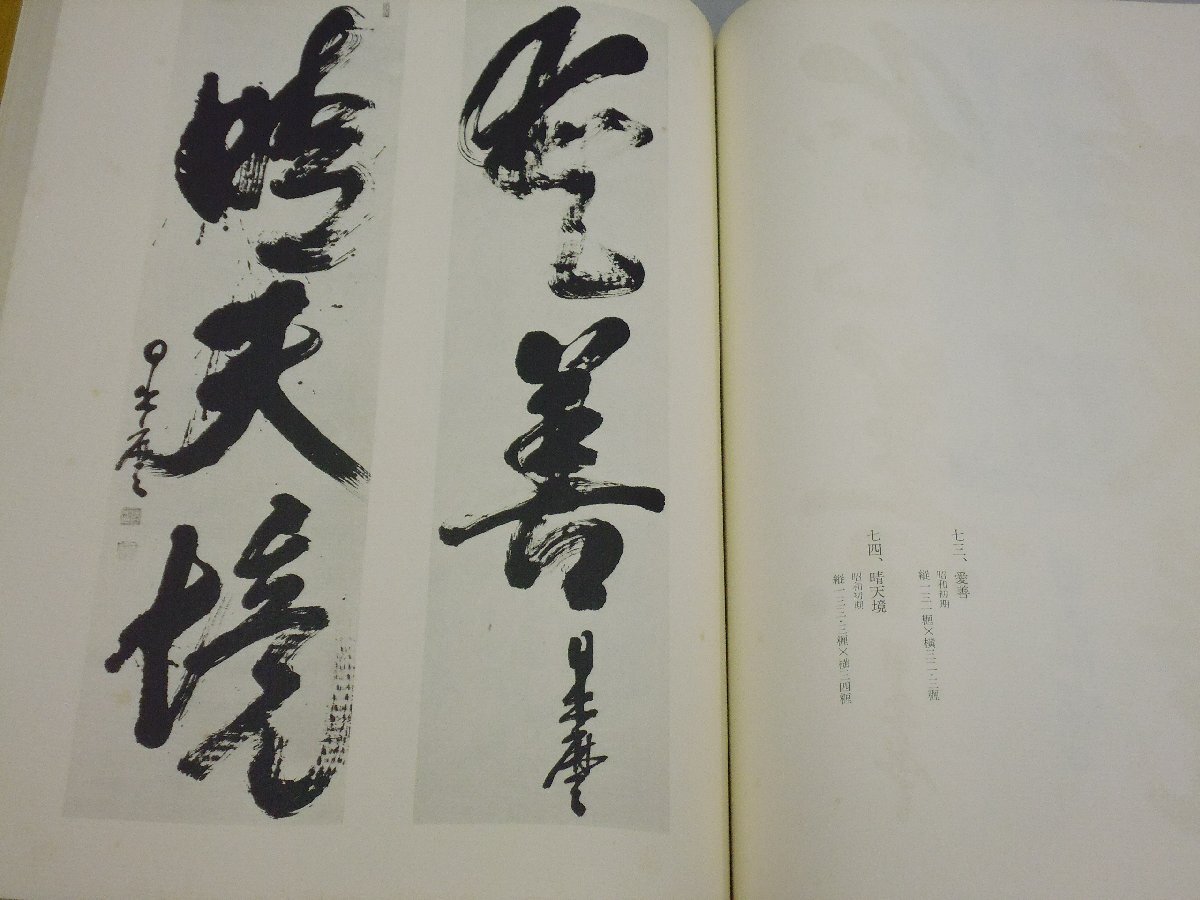 七三、愛善
昭和初期
縦一三一糎×横三二・三糎
七四、晴天境
昭和初期
縦一三三・三糎×横三四糎
愛善
晴天境